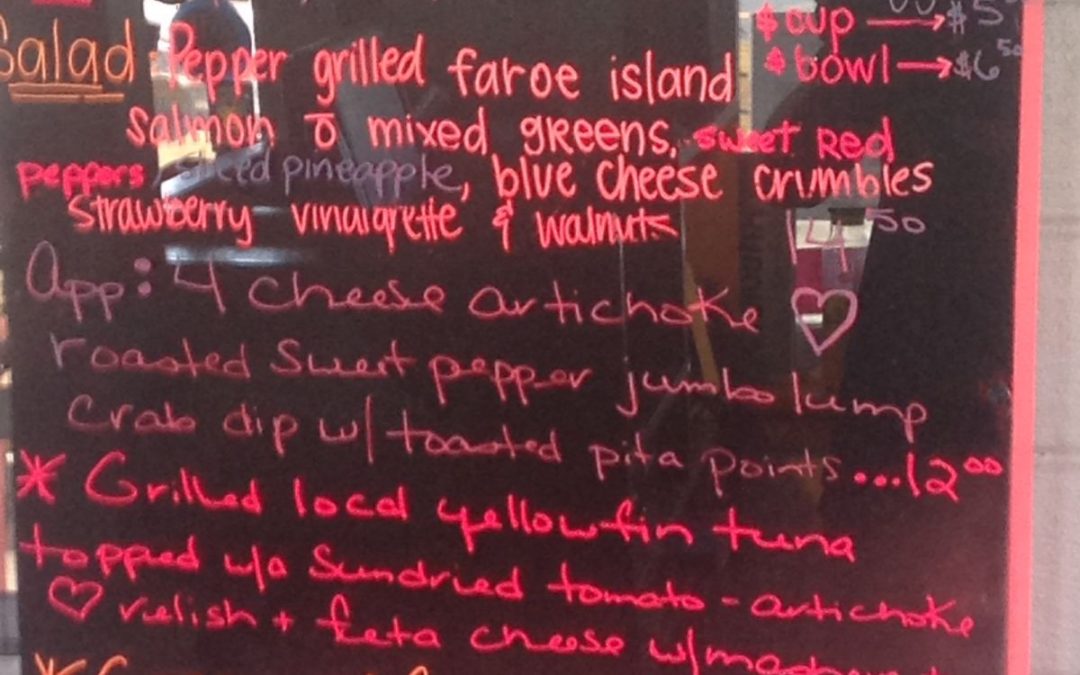 $ cup → $5
$ bowl → $6 50
Salad Pepper grilled faroe island
Salmon ō mixed greens, sweet red
peppers, sliced pineapple, blue cheese crumbles
Strawberry vinaigrette & walnuts
14 50
App: 4 cheese artichoke ♡
roasted Sweet pepper jumbo lump
Crab dip w/ toasted pita points ...12 00
* Grilled local yellowfin tuna
topped w/a Sundried tomato - artichoke
♡ relish + feta cheese w/